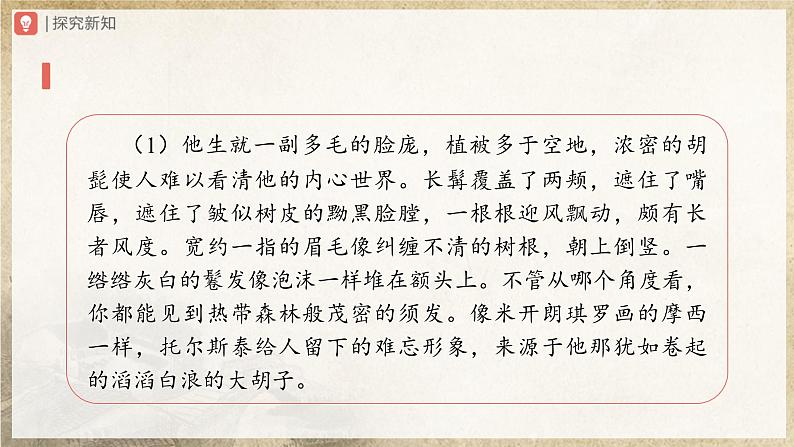 探究新知
（1）他生就一副多毛的脸庞，植被多于空地，浓密的胡
髭使人难以看清他的内心世界。长髯覆盖了两颊，遮住了嘴
唇，遮住了皱似树皮的黝黑脸膛，一根根迎风飘动，颇有长
者风度。宽约一指的眉毛像纠缠不清的树根，朝上倒竖。一
绺绺灰白的鬈发像泡沫一样堆在额头上。不管从哪个角度看，
你都能见到热带森林般茂密的须发。像米开朗琪罗画的摩西
一样，托尔斯泰给人留下的难忘形象，来源于他那犹如卷起
的滔滔白浪的大胡子。